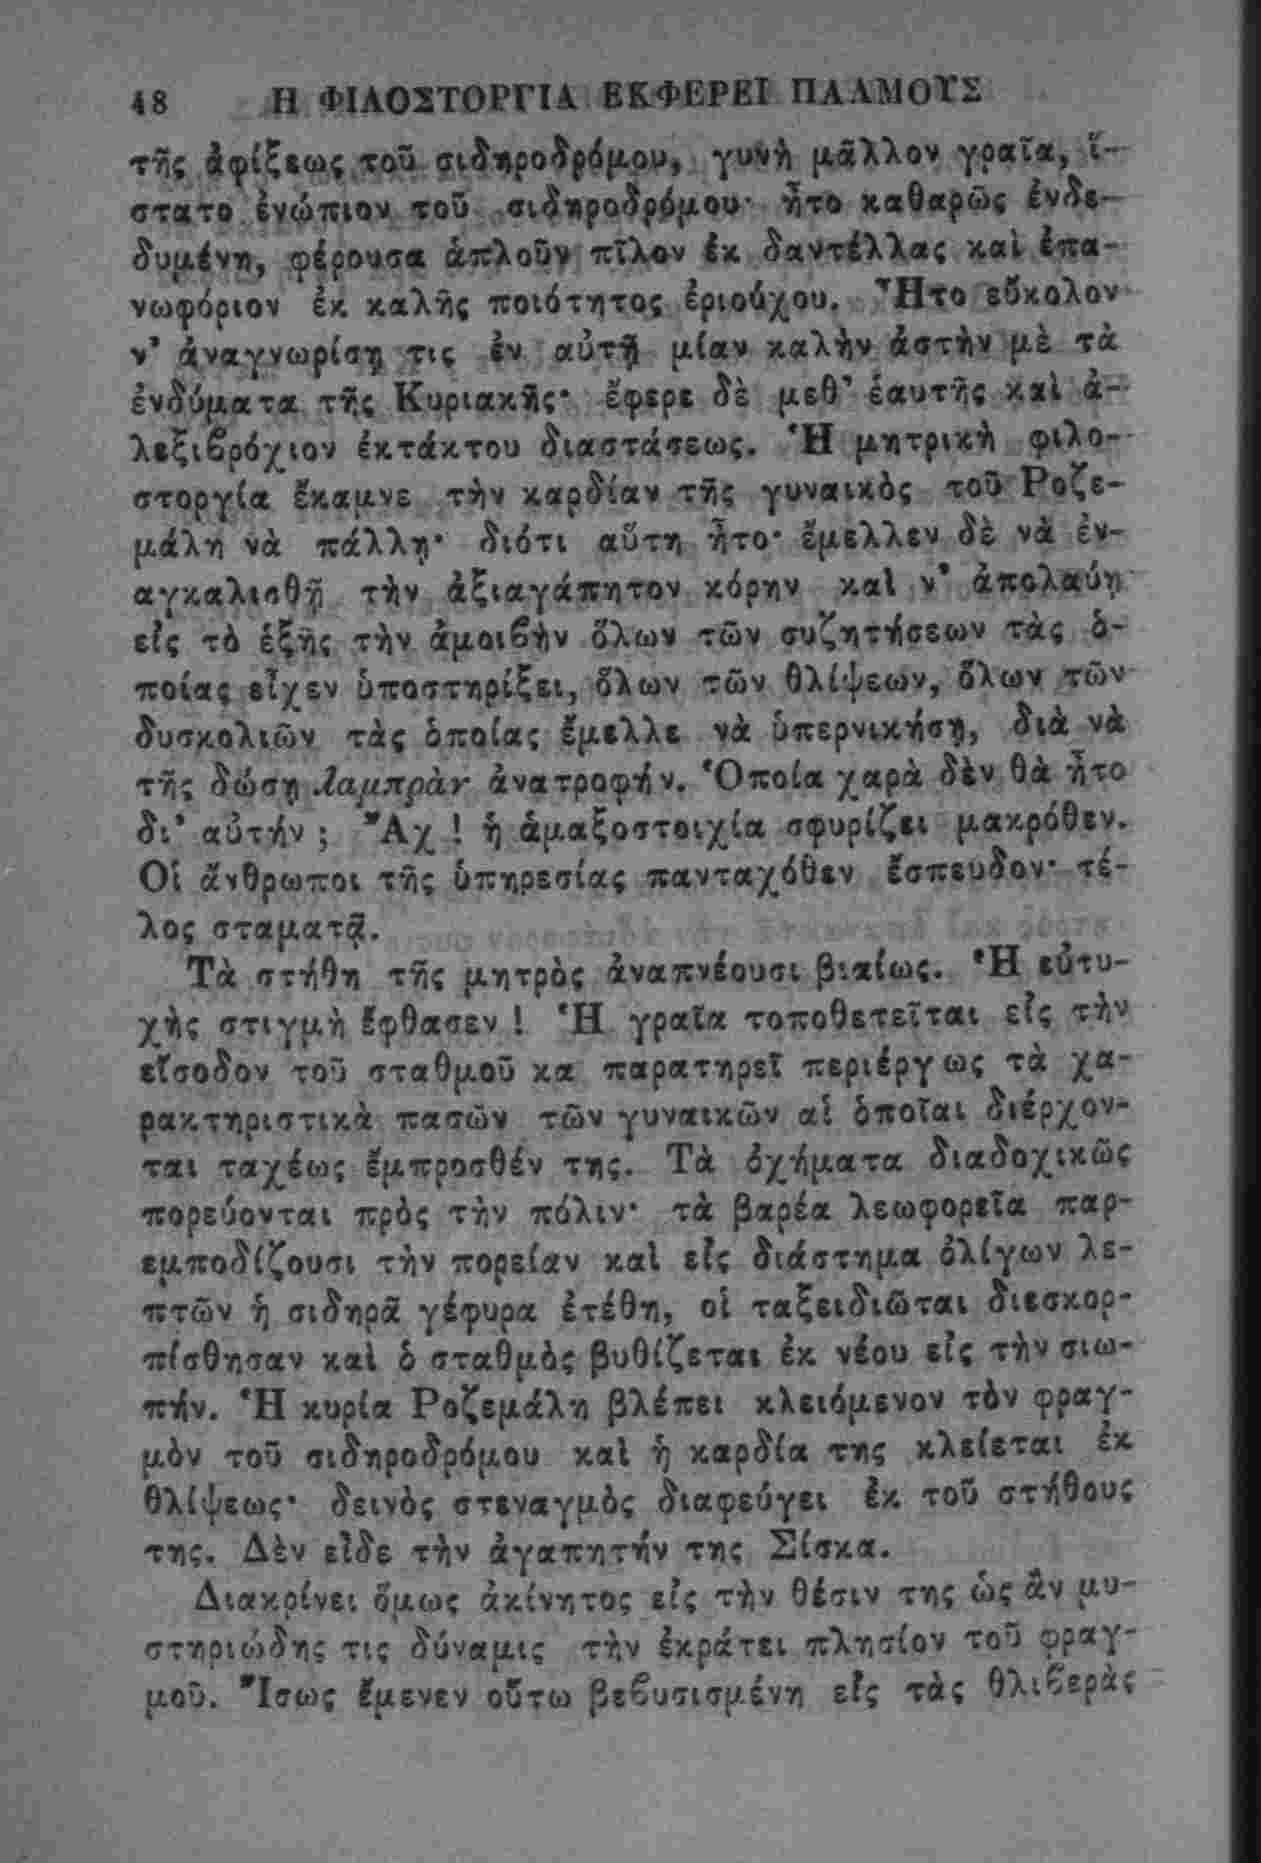 48 Η ΦΙΛΟΣΤΟΡΓΙΑ ΕΚΦΕΡΕΙ ΠΑΛΜΟΥΣ
τῆς ἀφίξεως τοῦ σιδηροδρόμου, γυνὴ μᾶλλον γραῖα, ἵ-
στατο ἐνώπιον τοῦ σιδηροδρόμου· ἦτο καθαρῶς ἐνδε-
δυμένη, φέρουσα ἁπλοῦν πῖλον ἐκ δαντέλλας καὶ ἐπα-
νωφόριον ἐκ καλῆς ποιότητος ἐριούχου. Ἦτο εὔκολον
ν' ἀναγνωρίσῃ τις ἐν αὐτῇ μίαν καλὴν ἀστὴν μὲ τὰ
ἐνδύματα τῆς Κυριακῆς· ἔφερε δὲ μεθ' ἑαυτῆς καὶ ἀ-
λεξιβρόχιον ἐκτάκτου διαστάσεως. Ἡ μητρικὴ φιλο-
στοργία ἔκαμνε τὴν καρδίαν τῆς γυναικὸς τοῦ Ροζε-
μάλη νὰ πάλλῃ· διότι αὕτη ἦτο· ἔμελλεν δὲ νὰ ἐν-
αγκαλισθῇ τὴν ἀξιαγάπητον κόρην καὶ ν' ἀπολαύῃ
εἰς τὸ ἑξῆς τὴν ἀμοιβὴν ὅλων τῶν συζητήσεων τὰς ὁ-
ποίας εἶχεν ὑποστηρίξει, ὅλων τῶν θλίψεων, ὅλων τῶν
δυσκολιῶν τὰς ὁποίας ἔμελλε νὰ ὑπερνικήσῃ, διὰ νὰ
τῆς δώσῃ λαμπρὰν ἀνατροφήν. Ὁποία χαρὰ δὲν θὰ ἦτο
δι' αὐτήν ; Ἄχ ! ἡ ἁμαξοστοιχία σφυρίζει μακρόθεν.
Οἱ ἄνθρωποι τῆς ὑπηρεσίας πανταχόθεν ἔσπευδον· τέ-
λος σταματᾷ.
Τὰ στήθη τῆς μητρὸς ἀναπνέουσι βιαίως. Ἡ εὐτυ-
χὴς στιγμὴ ἔφθασεν ! Ἡ γραῖα τοποθετεῖται εἰς τὴν
εἴσοδον τοῦ σταθμοῦ κα παρατηρεῖ περιέργως τὰ χα-
ρακτηριστικὰ πασῶν τῶν γυναικῶν αἱ ὁποῖαι διέρχον-
ται ταχέως ἔμπροσθέν της. Τὰ ὀχήματα διαδοχικῶς
πορεύονται πρὸς τὴν πόλιν· τὰ βαρέα λεωφορεῖα παρ-
εμποδίζουσι τὴν πορείαν καὶ εἰς διάστημα ὀλίγων λε-
πτῶν ἡ σιδηρᾶ γέφυρα ἐτέθη, οἱ ταξειδιῶται διεσκορ-
πίσθησαν καὶ ὁ σταθμὸς βυθίζεται ἐκ νέου εἰς τὴν σιω-
πήν. Ἡ κυρία Ροζεμάλη βλέπει κλειόμενον τὸν φραγ-
μὸν τοῦ σιδηροδρόμου καὶ ἡ καρδία της κλείεται ἐκ
θλίψεως· δεινὸς στεναγμὸς διαφεύγει ἐκ τοῦ στήθους
της. Δὲν εἶδε τὴν ἀγαπητήν της Σίσκα.
Διακρίνει ὅμως ἀκίνητος εἰς τὴν θέσιν της ὡς ἂν μυ-
στηριώδης τις δύναμις τὴν ἐκράτει πλησίον τοῦ φραγ-
μοῦ. Ἴσως ἔμενεν οὕτω βεβυσισμένη εἰς τὰς θλιβερὰς